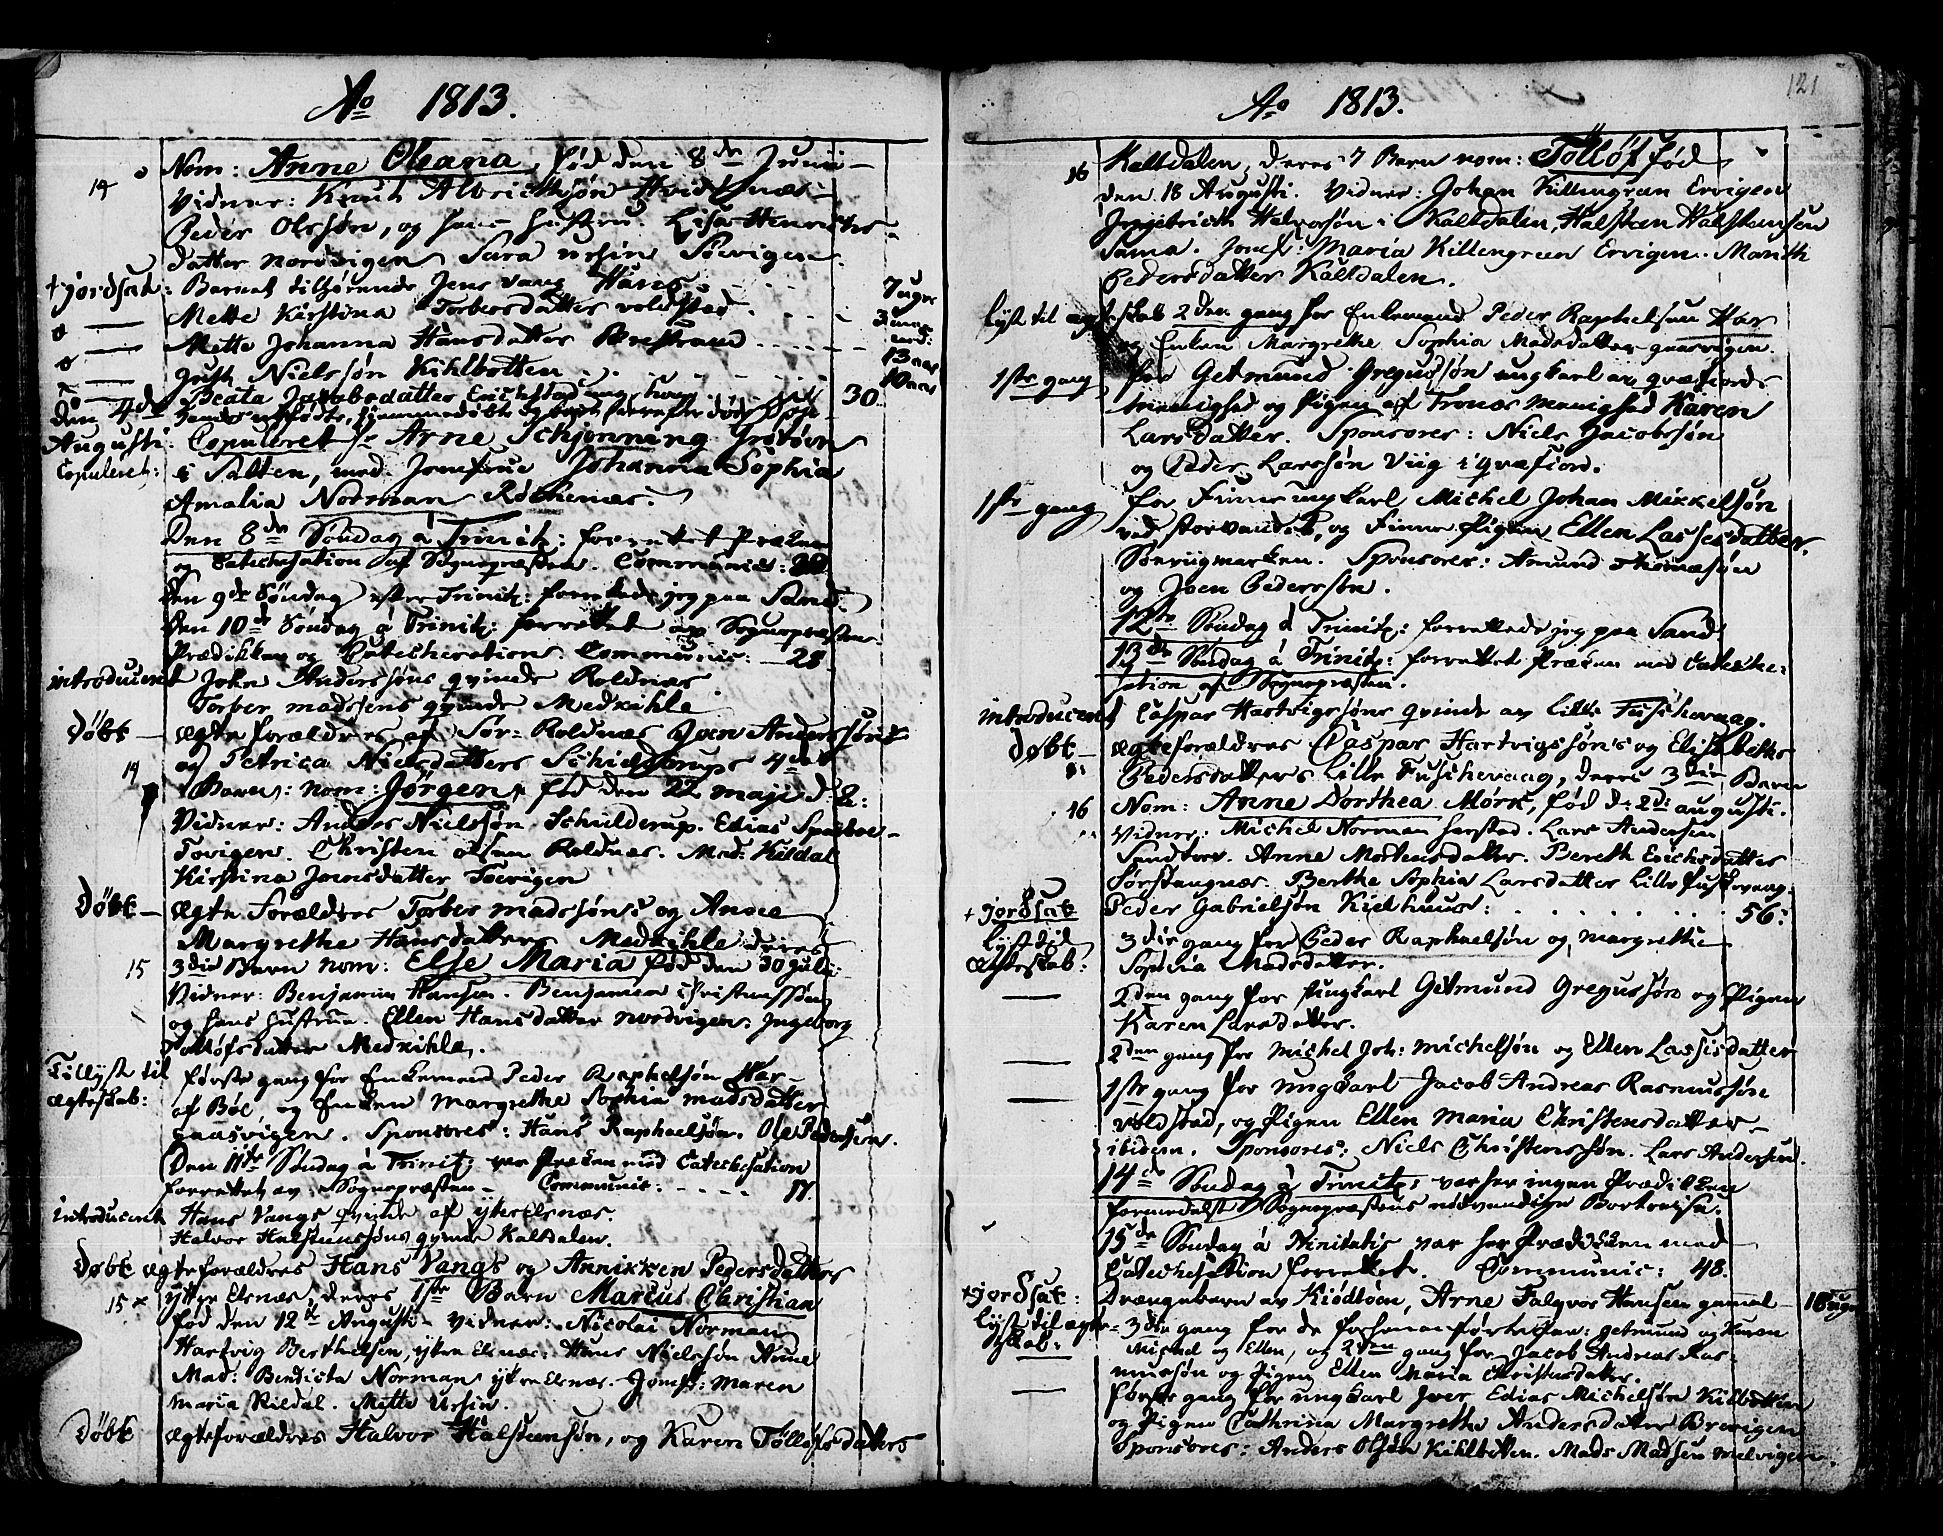 Ao 1813.
14 Nom: Anne Oleana, fød den 8de Junii
Vidner: Knut Albrichtsøn Hvidtnæs
Peder Olssøn, og hans hustru. Lisa Henrichs-
datter Nordvigen Sara Ursin Toevigen.
+ jordsat: Barnet tilhørende Jens Vang Hans 7 uger
Mette Kirstina Torbersdatter Voldstad 3 uger
Mette Johanna Hansdatter
Just Nielssøn Kihlbotten 13 aar
Beata Jacobsdatter Erichstad 10 aar
Den 4de 30
Augusti. Copuleret Hr Arne Schjønning Grøtøen
Copuleret: i Salten, med Jomfrue Johanna Sophia
Amalia Norman Rochenæs.
Den 8de Søndag á Trinit: forrettet Præken
og Catechisation af Sognepræsten. Communic: 20
Den 9de Søndag efter Trinit: forrettede jeg paa Sand.
Den 10de Søndag á Trinit: forrettet av Sognepræsten
Prædikken og Catechisation. Communic: 28
introduceret John Anderssøns qvinde Roldnæs
Torber Madssens qvinde Medkihle
Døbt ægte forældre af Sør-Roldnæs Joen Anderssøns
og Petrica Nielsdatters Schieldrups 4de
14 Barn: nom: Jørgen, fød den 22 Maji
Vidner: Anders Nielssøn Schulderup. Edias
Tovigen. Christen Olsen Roldnæs. Mad: Kildal
Kirstina Jonsdatter Toevigen
Døbt Ægte Forældre Torber Madssøns og Anne
Margrethe Hansdatters Medkihle deres
15 3die Barn nom: Else Maria fød den 30 Juli:
Vidner: Benjamin Hansen. Benjamin Christenssøn
og hans hustrue. Ellen Hansdatter Nordvigen. Ingeborg
Tolløfsdatter Medkihle.
Tillyst til første gang for Enkemand Peder Raphelsøn Har-
ægteskab: af Böe, og Enken Margrethe Sophia Madsdatter
Gaasvigen. Sponsores: Hans Raphaelsøn. Ole Pedersen.
Den 11te Søndag á Trinit: var Præken med Catechisation
forrettet av Sognepræsten Communic: 17.
introduceret Hans Vangs qvinde af ytre Elsnæs.
Halvor Halstenssøns qvinde Kaltdalen.
Døbt ægteforældres Hans Vangs og Annikken Pedersdatters
15 ytre Elsnæs, deres 1ste Barn Marcus Christian
fød den 12te Augusti. Vidner: Nicolai Norman
Hartvig Berthelsen, ytre Elsnæs. Hans Nielssøn
Mad: Bendicta Norman ytre Elsnæs. Jomf: Maren
Maria Kildal. Mette Ursin.
Døbt ægteforældres Halvor Halstensøn, og Karen Tølløfsdatters
Ao 1813. 121
16 Kaltdalen, deres 7 Barn nom: Tölløf fød
den 18 Augusti. Vidner: Johan Killengreen Ervigen
Halvorsøn i Kaltdalen, Halsten Halstensen
Sama. Jomf: Maria Killengreen Ervigen. Marith
Pedersdatter Kaltdalen.
lyst til ægteskab 2den gang for Enkemand Peder Raphelsøn Har
og Enken Margrethe Sophia Madsdatter Gaasvigen.
1ste gang for Getmund Gregussøn ungkarl av Qvæfiords
menighed og Pigen af Tronæs Menighed Karen
Larsdatter. Sponsores: Niels Jacobssøn
og Peder Larssøn Viig i Qvæfiord.
1ste gang for Finne ungkarl Michel Johan Mikkelsøn
ved Storvandet, og Finne Pigen Ellen Lassesdatter
Sørvigmarken. Sponsores: Amund Thomæsøn
og Joen Pederssøn.
12te Søndag á Trinit: forrettede jeg paa Sand
13de Søndag á Trinit: forrettet Præken med Cateche-
sation af Sognepræsten.
introduceret Caspar Hartvigssøns qvinde av Lille Fuschevaag.
Døbt ægteforældres Caspar Hartvigssøns og Elisabeths
Pedersdatters Lille Fuschevaag, deres 3die Barn
16 Nom: Anne Dorthea Mörk, fød d: 2d: augusti.
Vidner: Michel Norman Harstad. Lars Andersen
Sandtorv. Anne Mortensdatter. Bereth Erichsdatter
Sørstangnæs. Berthe Sophia Larsdatter Lille Fuschevaag.
+ jordsat Peder Gabrielsøn Kielhuus: 56:
lyst til 3die gang for Peder Raphaelsøn og Margrethe
Ægteskab: Sophia Madsdatter.
2den gang for Ungkarl Getmund Gregussøn og Pigen
Karen Larsdatter.
2den gang for Michel Joh: Michelsøn og Ellen Lassisdatter
1ste gang for ungkarl Jacob Andreas Rasmussøn
Voldstad, og Pigen Ellen Maria Christensdatter
ibidem. Sponsores: Niels Christenssøn. Lars Andersen.
14de Søndag á Trinit: var her ingen Prædikken
formedelst Sognepræstens nødvendige Bortreise.
15de Søndag á Trinitatis var her Prædikken med
Catechisation forrettet. Communic: 48.
+ jordsat: Drængebarn av Kiødtøen, Arne Falqvor Hansen gammel 18 uger
lyst til ægte- 3die gang for de forhenanførte Par: Getmund og Karen
skab: Michel og Ellen, og 2den gang for Jacob Andreas Ras-
mussøn og Pigen Ellen Maria Christensdatter.
første gang for ungkarl Iver Edias Michelsøn Kilbotten
og Pigen Cathrina Margrethe Andersdatter Brevigen
Sponsores: Anders Olsøn Kiehlbotten. Mads Madsen Melvigen.